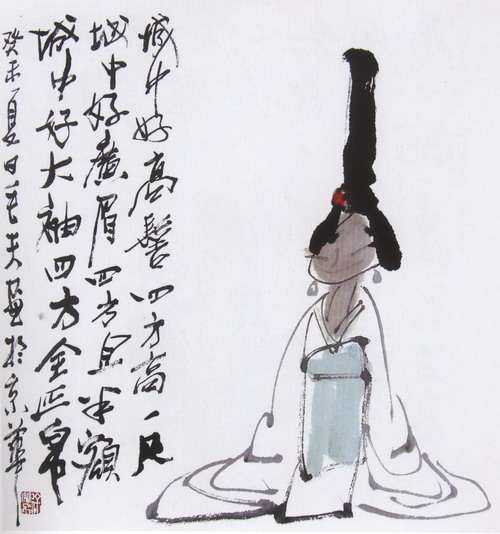 城中好高髻四方高一尺
城中好廣眉四方且半額
城中好大袖四方全匹帛
癸未夏日夫畫於京華